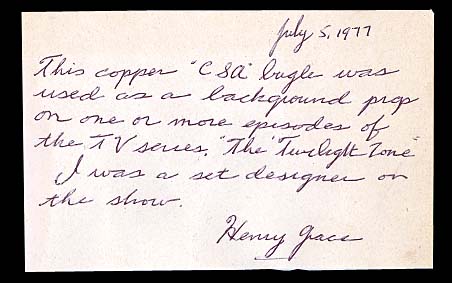 July 5, 1977
This copper "CSA" bugle was
used as a background prop
on one or more episodes of
the TV series, "The Twilight Zone"
I was a set designer on
the show.
Henry Grace